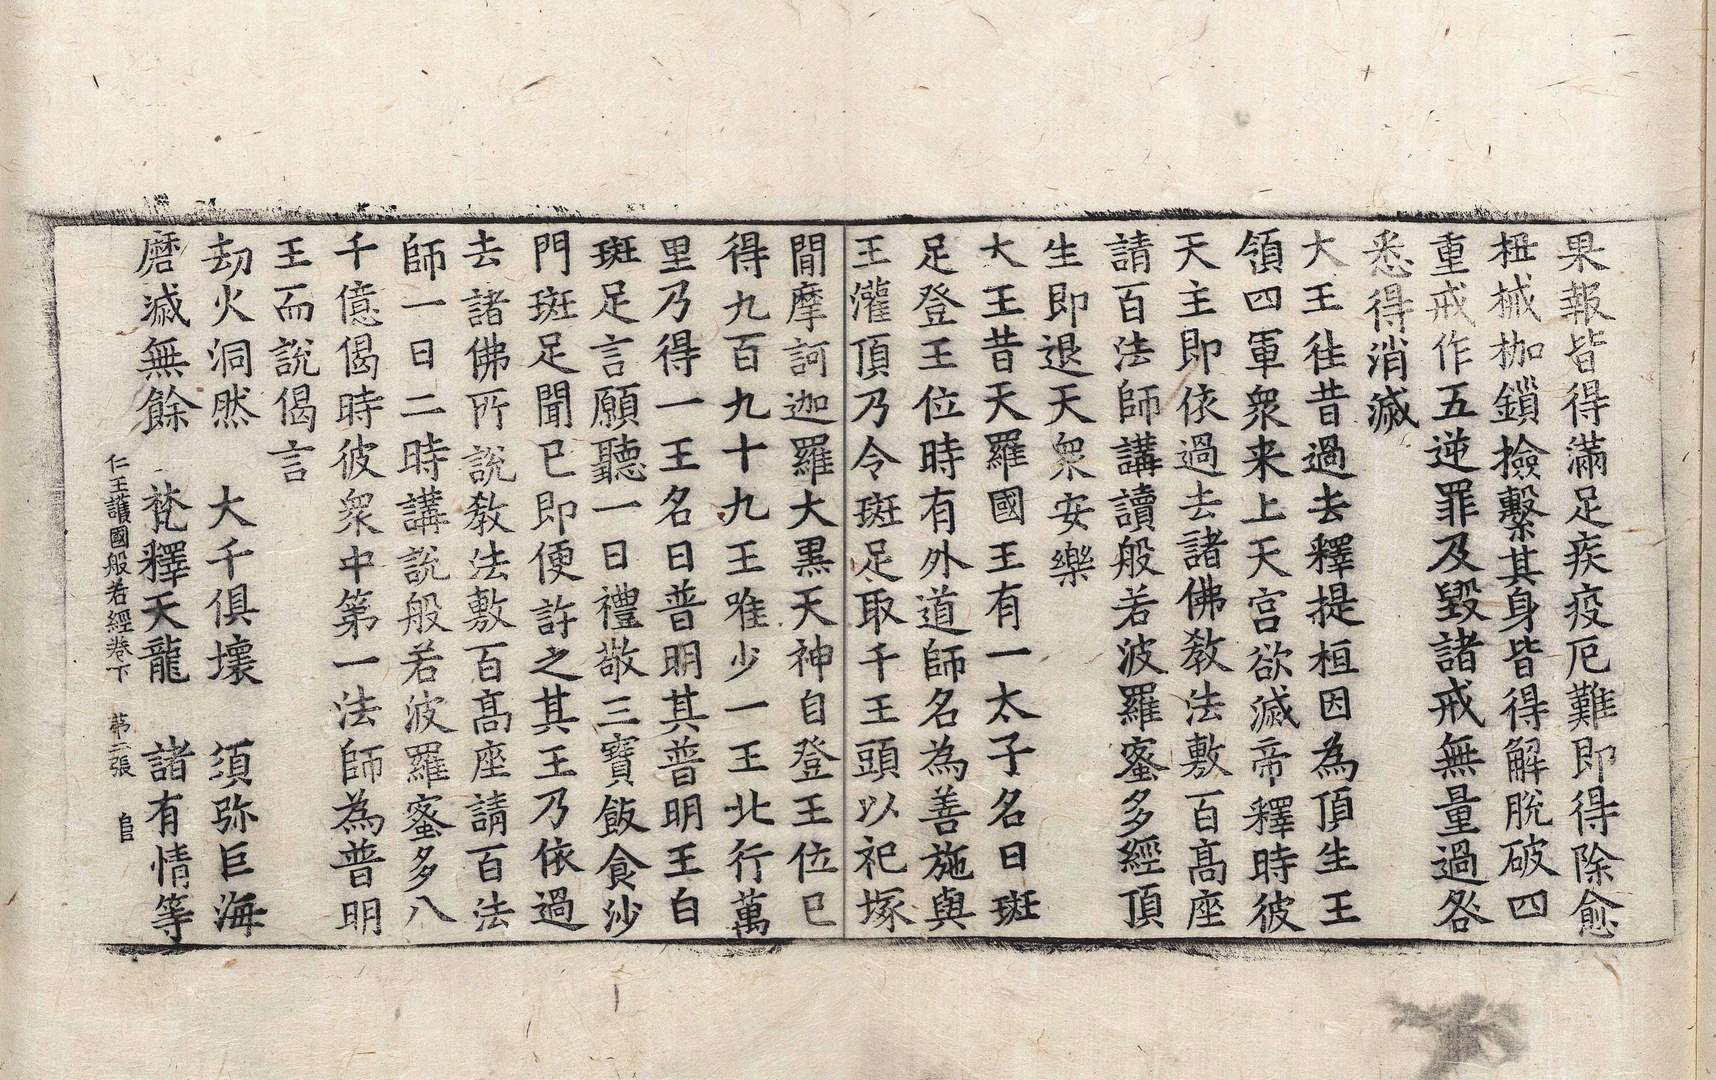 果報皆得滿足疾疫厄難即得除愈
杻械枷鎖撿繫其身皆得解脫破四
重戒作五逆罪及毀諸戒無量過咎
悉得消滅
大王往昔過去釋提桓因為頂生王
領四軍衆来上天宮欲滅帝釋時彼
天主即依過去諸佛教法敷百髙座
請百法師講讀般若波羅蜜多經頂
生即退天衆安樂
大王昔天羅國王有一太子名曰斑
足登王位時有外道師名為善施與
王灌頂乃令斑足取千王頭以祀塚
間摩訶迦羅大黒天神自登王位已
得九百九十九王唯少一王北行萬
里乃得一王名曰普明其普明王白
斑足言願聽一日禮敬三寶飯食沙
門斑足聞已即便許之其王乃依過
去諸佛所說教法敷百髙座請百法
師一日二時講說般若波羅蜜多八
千億偈時彼衆中第一法師為普明
王而說偈言
劫火洞然　大千俱壞　須弥巨海
磨滅無餘　梵釋天龍　諸有情等
仁王護國般若經卷下　苐二張